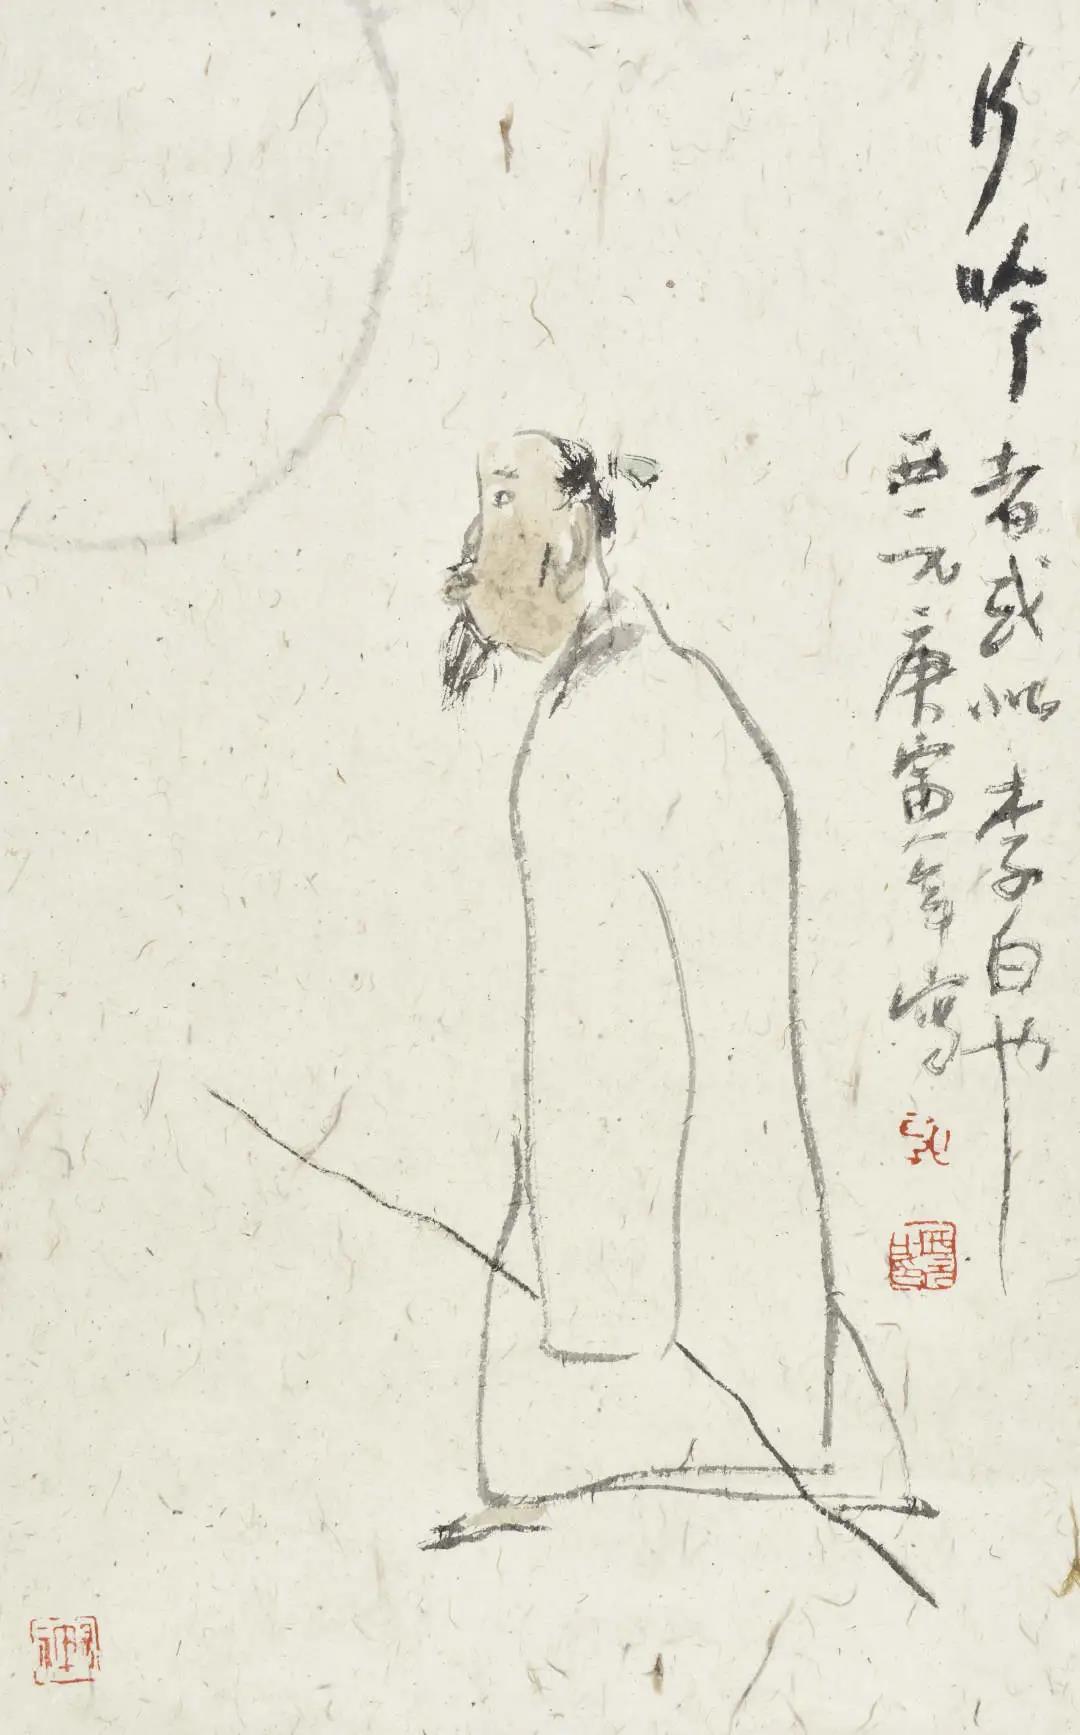 行吟者或似李白也
西元庚寅年写